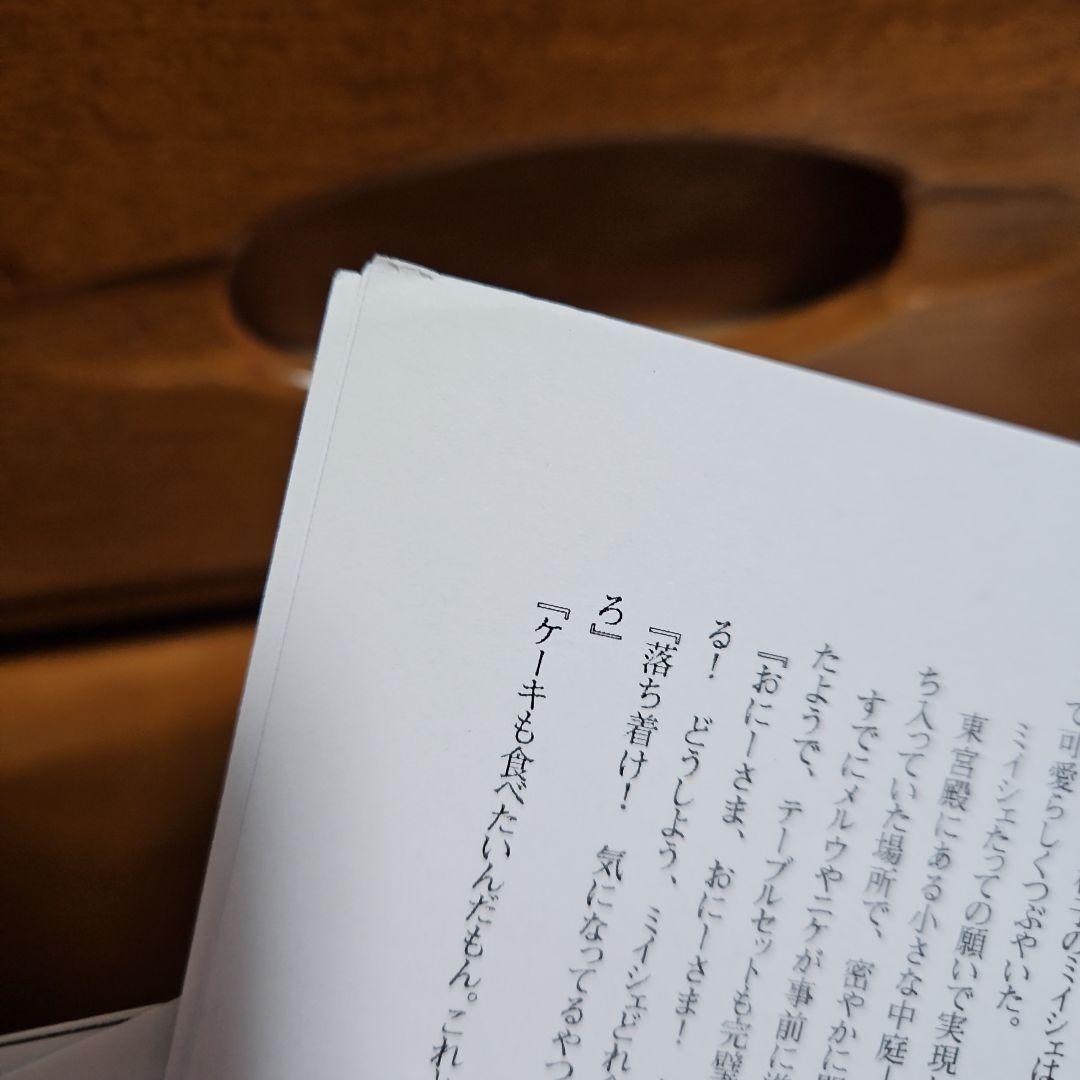 で可愛らしくつぶやいた。
ミイシェたっての願いで実現
東宮殿にある小さな中庭
ち入っていた場所で、密やかに
すでにメルウやニケが事前に
たようで、テーブルセットも完璧
『おにーさま、おにーさま!
る! どうしよう、ミイシェどれ
『落ち着け! 気になってるやつ
ろ』
『ケーキも食べたいんだもん。これ